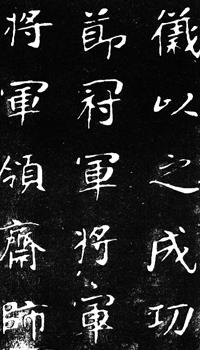 徽以之成功
節冠軍將軍
將軍領齋帥